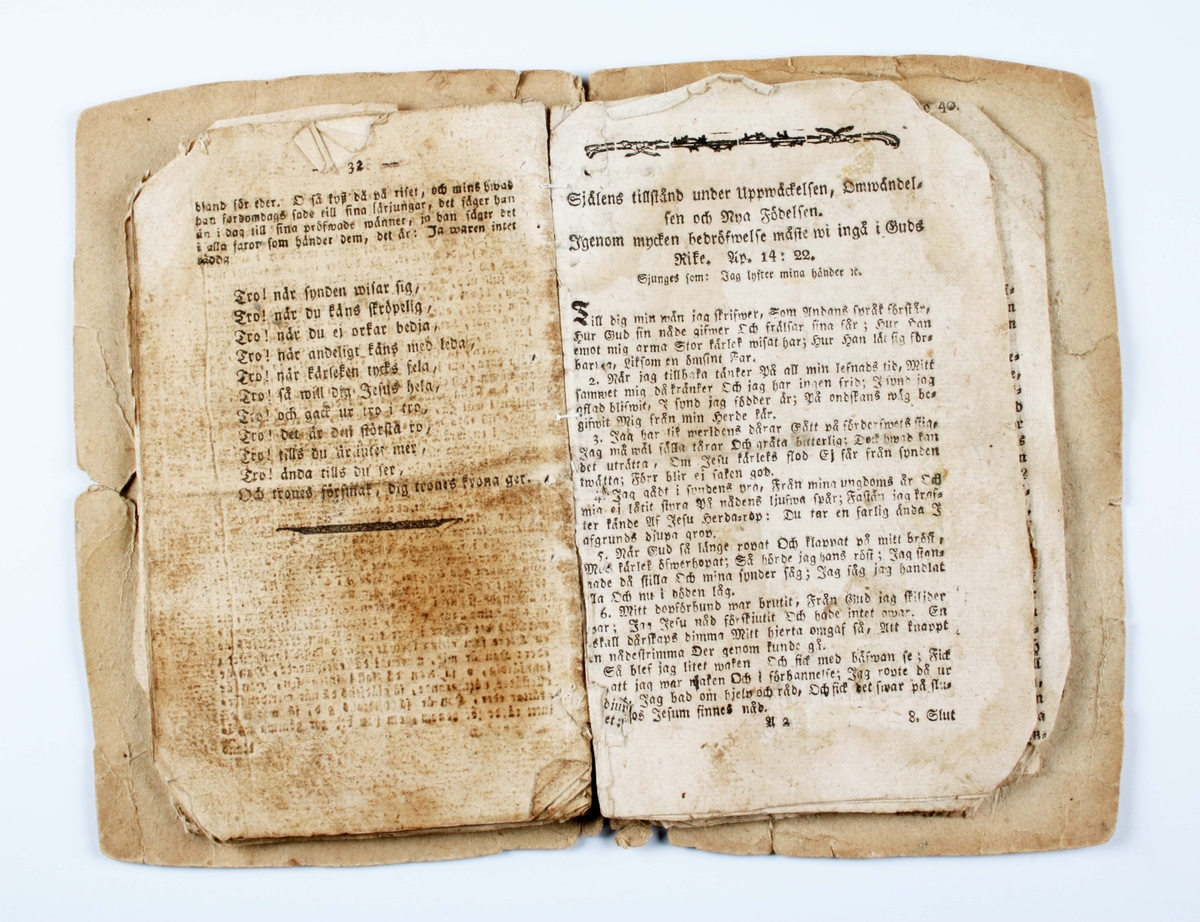 32 —
bland för eder. O så kyß då på riset, och mins hwad
han fordomdags sade till sina lärjungar, det säger han
än i dag till sina pröfwade wänner, jo han säger det
i alla faror som händer dem, det är: Ja waren intet
rädda
Tro! när synden wisar sig,
Tro! när du käns skröpelig,
Tro! när du ej orkar bedja,
Tro! när andeligt käns med leda,
Tro! när kärleken tycks fela,
Tro! så will dig Jesus hela,
Tro! och gack ur tro i tro,
Tro! det är den största ro,
Tro! tills du är intet mer,
Tro! ända tills du ser,
Och trones försmak, dig trones krona ger.
40.
Själens tillstånd under Uppwäckelsen, Omwändel-
sen och Nya Födelsen.
Igenom mycken bedröfwelse måste wi ingå i Guds
Rike. Ap. 14: 22.
Sjunges som: Jag lyfter mina händer ꝛc.
Till dig min wän jag skrifwer, Som Andans språk förstår,
Hur Gud sin nåde gifwer Och frälsar sina får; Hur Han
emot mig arma Stor kärlek wisat har; Hur Han lät sig för-
barma, Liksom en ömsint Far.
2. När jag tillbaka tänker På all min lefnads tid, Mitt
samwet mig då kränker Och jag har ingen frid; I synd jag
aflad blifwit, I synd jag födder är; På ondskans wäg be-
gifwit Mig från min Herde kär.
3. Jag har lik werldens dårar Gått på förderfwets stig,
Jag må wäl fälla tårar Och gråta bitterlig; Dock hwad kan
det uträtta, Om Jesu kärleks flod Ej får från synden
twätta; Förr blir ej saken god.
4. Jag gådt i syndens yra, Från mina ungdoms år Och
mig ej låtit styra På nådens ljufwa spår; Fastän jag kraf-
ter kände Af Jesu Herda-röp: Du tar en farlig ända I
afgrunds djupa grop.
5. När Gud så länge ropat Och klappat på mitt bröst,
Med kärlek öfwerhopat; Så hörde jag hans röst; Jag stan-
nade då stilla Och mina synder såg; Jag såg jag handlat
lla Och nu i döden låg.
6. Mitt dopförbund war brutit, Från Gud jag skiljder
war; Jag Jesu nåd förskjutit Och hade intet qwar. En
skall dårskaps dimma Mitt hjerta omgaf så, Att knappt
n nådestrimma Der genom kunde gå.
Så blef jag litet waken Och fick med bäfwan se; Fick
att jag war naken Och i förbannelse; Jag ropte då ur
djupe Jag bad om hjelp och råd, Och fick det swar på slu-
et: os Jesum finnes nåd.
A 2 8. Slut